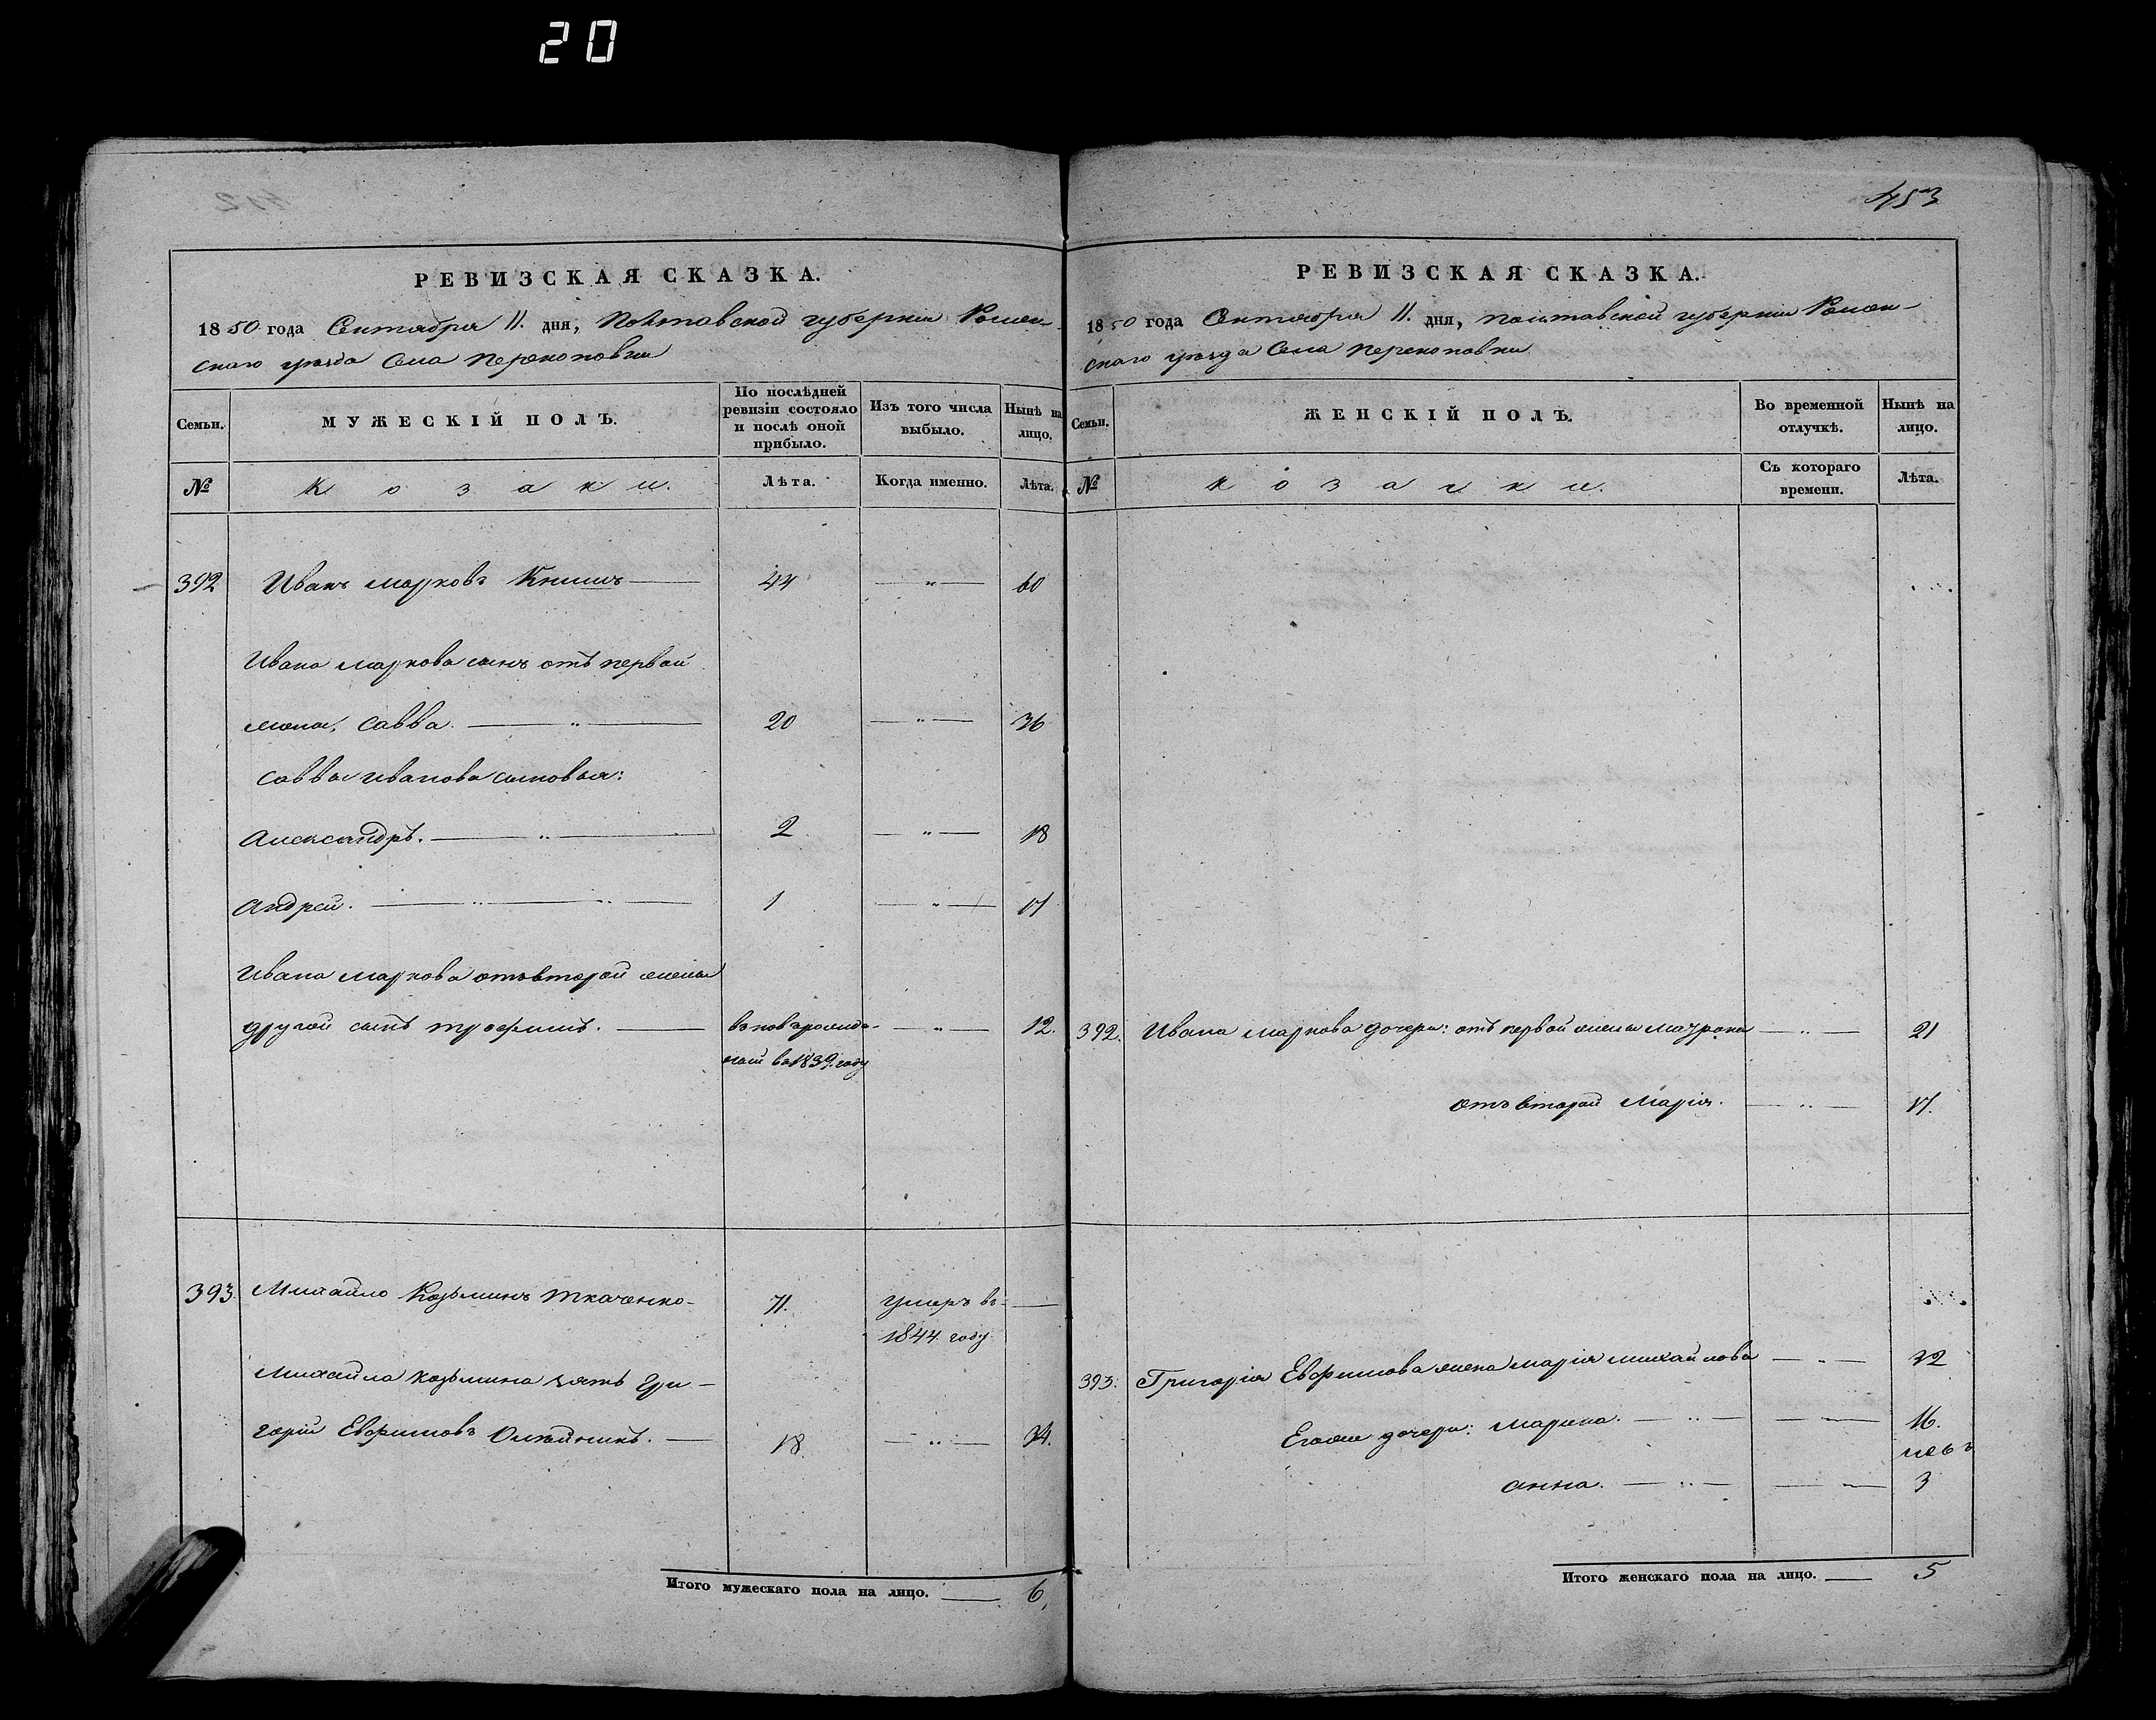 20
453
РЕВИЗСКАЯ СКАЗКА.
1850 года Сентября 11. дня, Полтавской губернии Ромен-
скаго уезда Села Перекоповки
Семьи.
МУЖЕСКІЙ ПОЛЪ.
По послѣдней ревизіи состояло и послѣ оной прибыло.
Изъ того числа выбыло.
Нынѣ на лицо.
№
Козаки.
Лѣта.
Когда именно.
Лѣта.
392 Иванъ Марковъ Книшъ — 44 — „ — 60
Ивана Маркова сынъ отъ первой
жены, Савва. — „ — 20 — „ — 36
Саввы Иванова сыновья:
Александръ. — „ — 2 — „ — 18
Андрей. — „ — „ — 1 — „ — 17
Ивана Маркова отъ второй жены
другой сынъ Трофимъ. — — „ — 12.
въ 1839. году
393. Михайло Козьминъ Ткаченко- 71. умеръ въ —
1844. году
Михайла Козьмина зять Гри-
горій Евфимовъ Олѣйникъ. — 18. — „ — 34.
Итого мужескаго пола на лицо. — 6,
РЕВИЗСКАЯ СКАЗКА.
1850 года Сентября 11. дня, Полтавской губернии Ромен-
скаго уезда Села Перекоповки
Семьи.
ЖЕНСКІЙ ПОЛЪ.
Во временной отлучкѣ.
Нынѣ на лицо.
№
Козачки.
Съ котораго времени.
Лѣта.
392. Ивана Маркова дочери: отъ первой жены — „ — 21
отъ второй Марія. — „ — 17.
393. Григорія Евфимова жена Марія Михайлова — „ — 32
Егоже дочери: Марина. — „ — — „ — 16.
Анна. — „ — — „ — 3
Итого женскаго пола на лицо. — 5